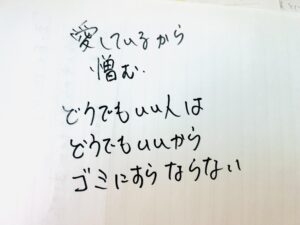 愛しているから
憎む.
どうでもいい人は
どうでもいいから
ゴミにすらならない